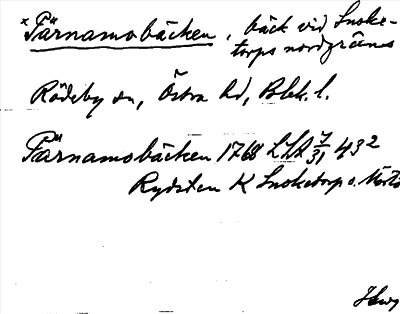 *Pärnamobäcken, bäck vid Snoke-
torps nordgräns
Rödeby sn, Östra hd, Blek. l.
Pärnamobäcken 1768 LSA 7/31 432
Rydsten K Snoketorp o.